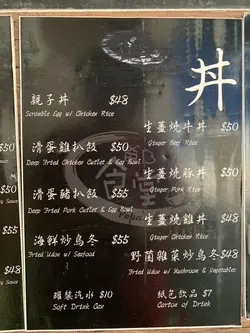 丼
親子丼 $48
Scramble Egg w/ Chicken Rice
滑蛋雞扒飯 $50
Deep Fried Chicken Cutlet & Egg Bowl
滑蛋豬扒飯 $55
Deep Fried Pork Cutlet & Egg Bowl
海鮮炒烏冬 $55
Fried Udon w/ Seafood
罐裝汽水 $10
Soft Drink Can
生薑燒牛丼 $50
Ginger Beef Rice
生薑燒豚丼 $50
Ginger Pork Rice
生薑燒雞丼 $48
Ginger Chicken Rice
野菌雜菜炒烏冬 $48
Fried Udon w/ Mushroom & Vegetables
紙包飲品 $7
Carton of Drink
50
y Sauce
55
y Sauce
$50
$48